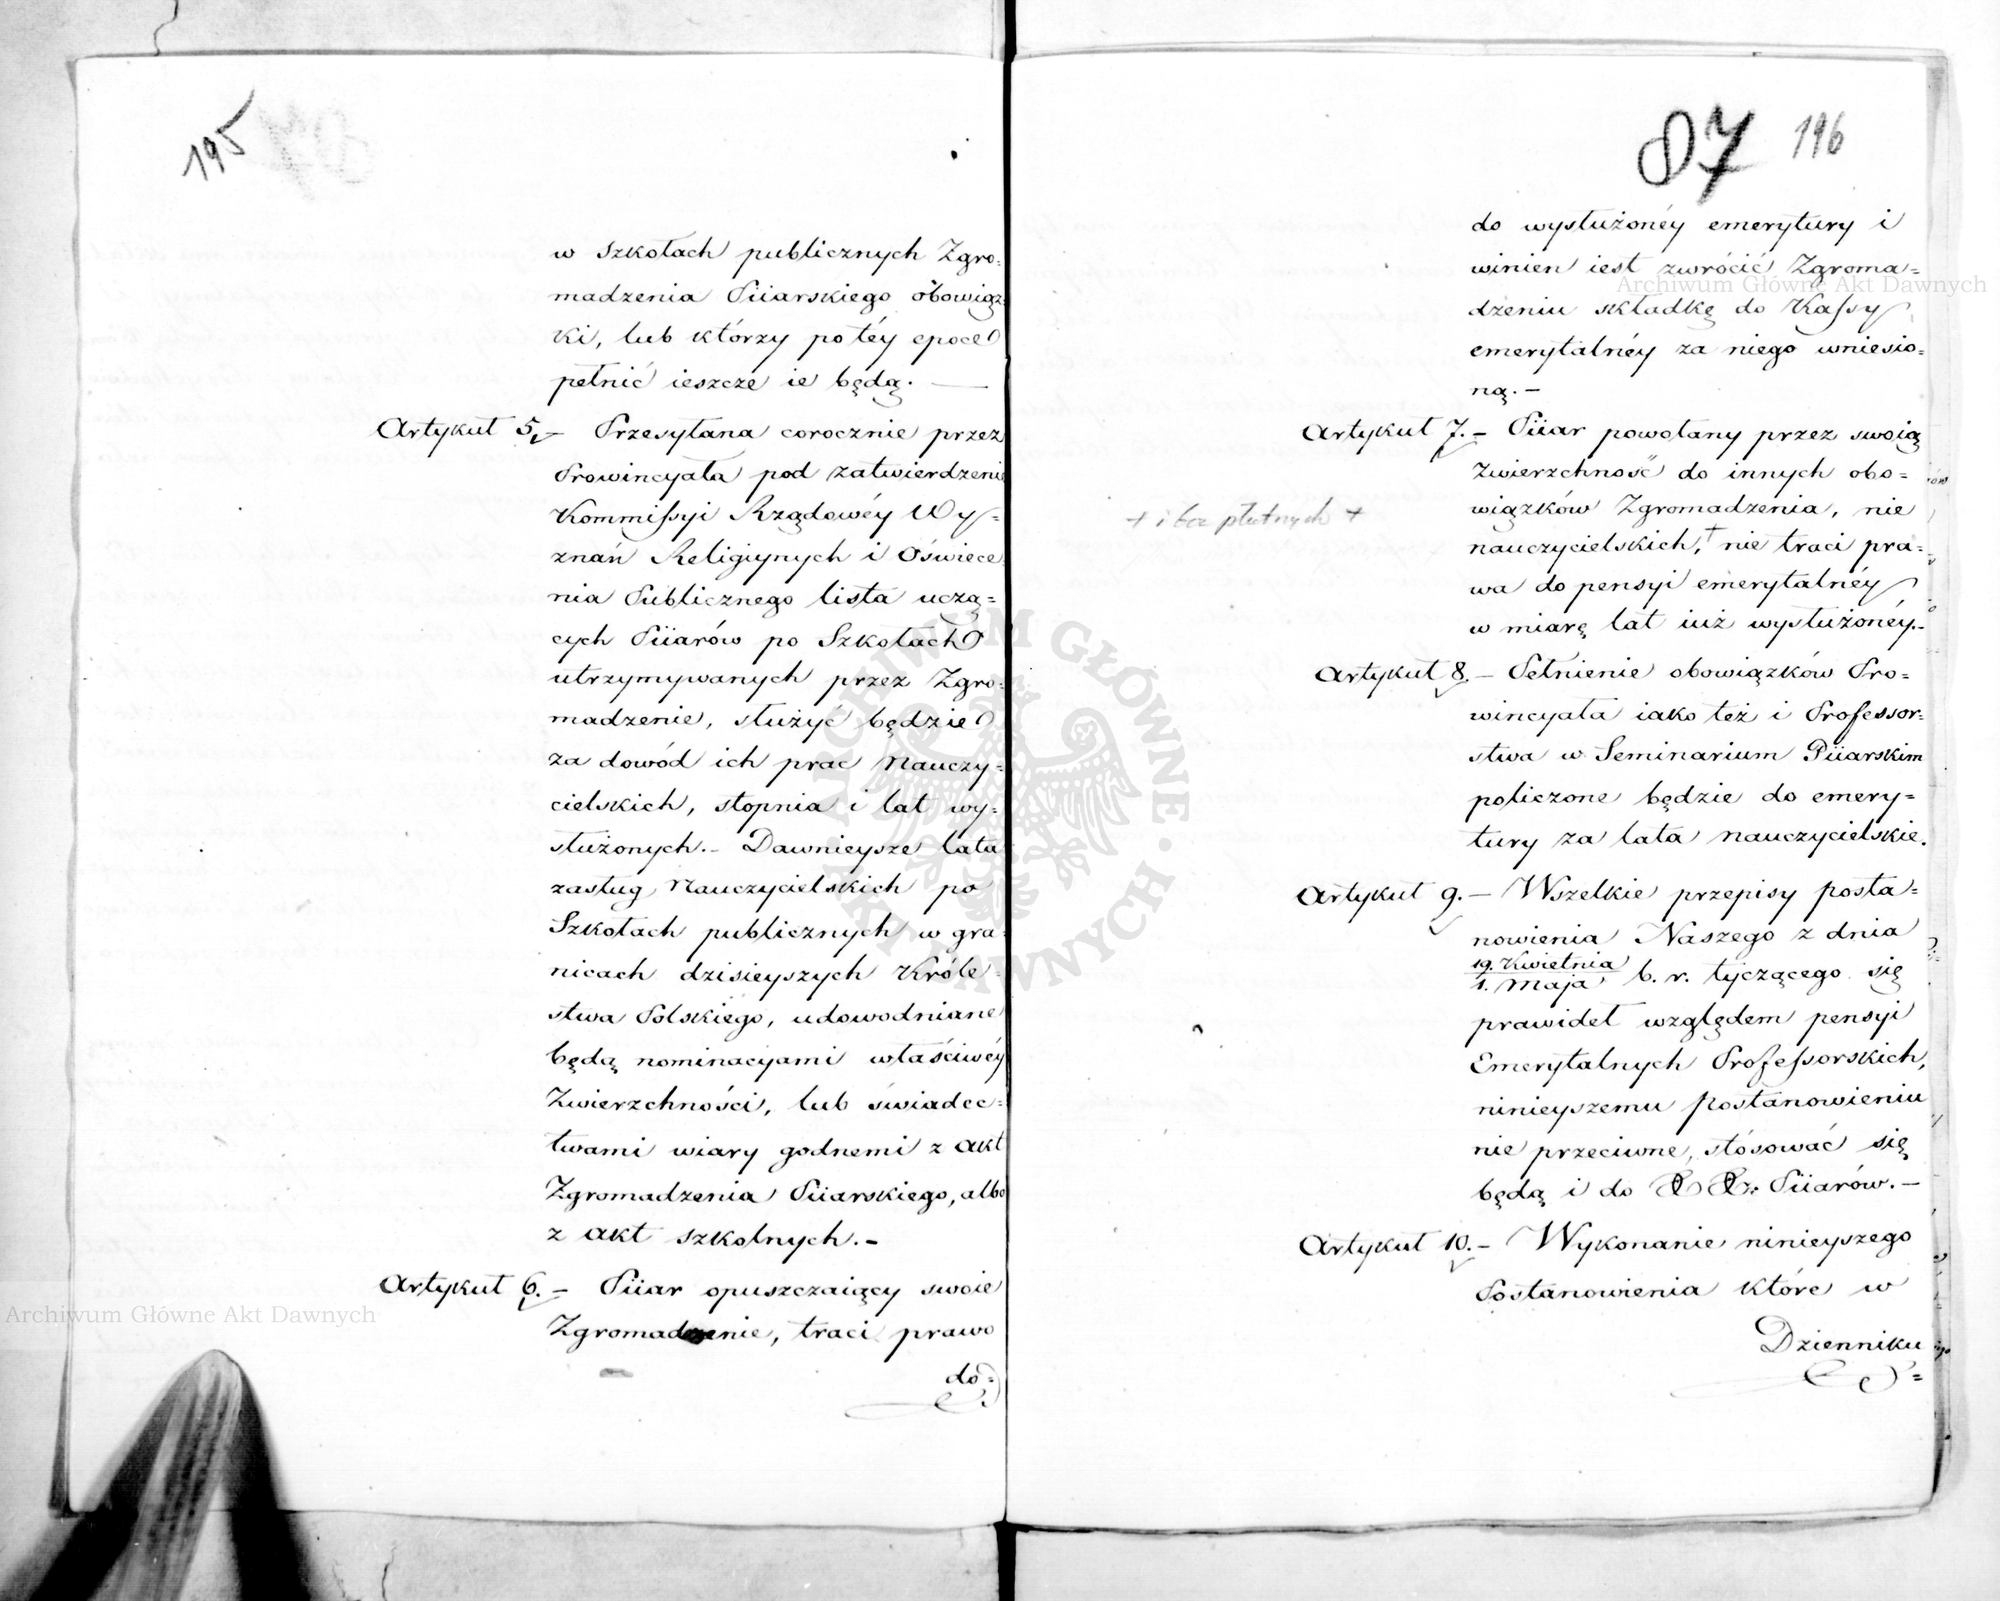 195
w Szkołach publicznych Zgro=
madzenia Piiarskiego obowiąz=
ki, lub którzy po téy epoce
pełnić ieszcze ie będą. —
Artykuł 5. – Przesyłana corocznie przez
Prowincyała pod zatwierdzenie
Kommissyi Rządowéy Wy=
znań Religiynych i Oświece=
nia Publicznego lista uczą=
cych Piiarów po Szkołach
utrzymywanych przez Zgro=
madzenie, służyć będzie
za dowód ich prac Nauczy=
cielskich, stopnia i lat wy=
służonych. – Dawnieysze lata
zasług Nauczycielskich po
Szkołach publicznych w gra=
nicach dzisieyszych Króle=
stwa Polskiego, udowodniane
będą nominacyami właściwéy
Zwierzchności, lub świadec=
twami wiary godnemi z akt
Zgromadzenia Piiarskiego, albo
z akt szkolnych. –
Artykuł 6. – Piiar opuszczaiący swoie
Zgromadzenie, traci prawo
do=
87 196
do wysłużonéy emerytury i
winien iest zwrócić Zgroma=
dzeniu składkę do Kassy
emerytalnéy za niego wniesio=
ną. –
Artykuł 7. – Piiar powołany przez swoią
Zwierzchność do innych obo=
wiązków Zgromadzenia, nie
+ i bez płatnych +
nauczycielskich, + nie traci pra=
wa do pensyi emerytalnéy
w miarę lat iuż wysłużonéy. –
Artykuł 8. – Pełnienie obowiązków Pro=
wincyała iako też i Professor=
stwa w Seminarium Piiarskim
policzone będzie do emery=
tury za lata nauczycielskie.
Artykuł 9. – Wszelkie przepisy posta=
nowienia Naszego z dnia
19. Kwietnia / 1. Maja b. r. tyczącego się
prawideł względem pensyi
Emerytalnych Professorskich,
ninieyszemu postanowieniu
nie przeciwne, stósować się
będą i do XX. Piiarów. –
Artykuł 10. – Wykonanie ninieyszego
Postanowienia które w
Dzienniku
Archiwum Główne Akt Dawnych
Archiwum Główne Akt Dawnych
ARCHIWUM GŁÓWNE AKT DAWNYCH